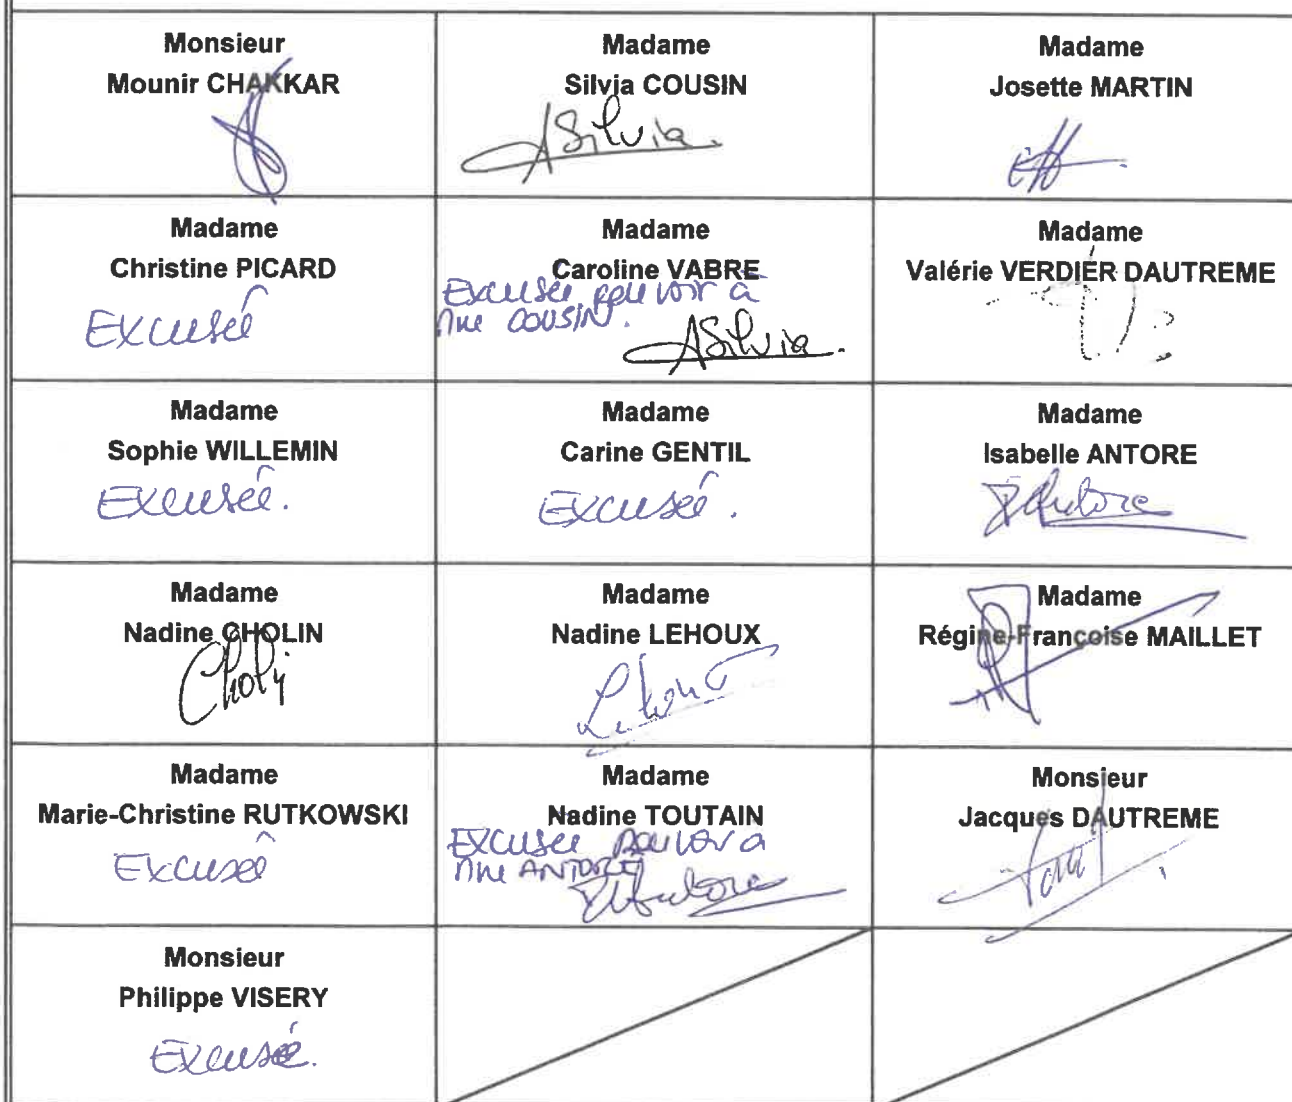 Monsieur
Mounir CHAKKAR
Madame
Silvia COUSIN
Silvia
Madame
Josette MARTIN
Madame
Christine PICARD
Excusée
Madame
Caroline VABRE
Excusée pouvoir à
Mme COUSIN.
Silvia
Madame
Valérie VERDIER DAUTREME
Madame
Sophie WILLEMIN
Excusée.
Madame
Carine GENTIL
Excusée.
Madame
Isabelle ANTORE
Antore
Madame
Nadine CHOLIN
Choli
Madame
Nadine LEHOUX
Lehoux
Madame
Régine-Françoise MAILLET
Madame
Marie-Christine RUTKOWSKI
Excusée
Madame
Nadine TOUTAIN
Excusée pouvoir à
Mme ANTORE
Antore
Monsieur
Jacques DAUTREME
Monsieur
Philippe VISERY
Excusé.